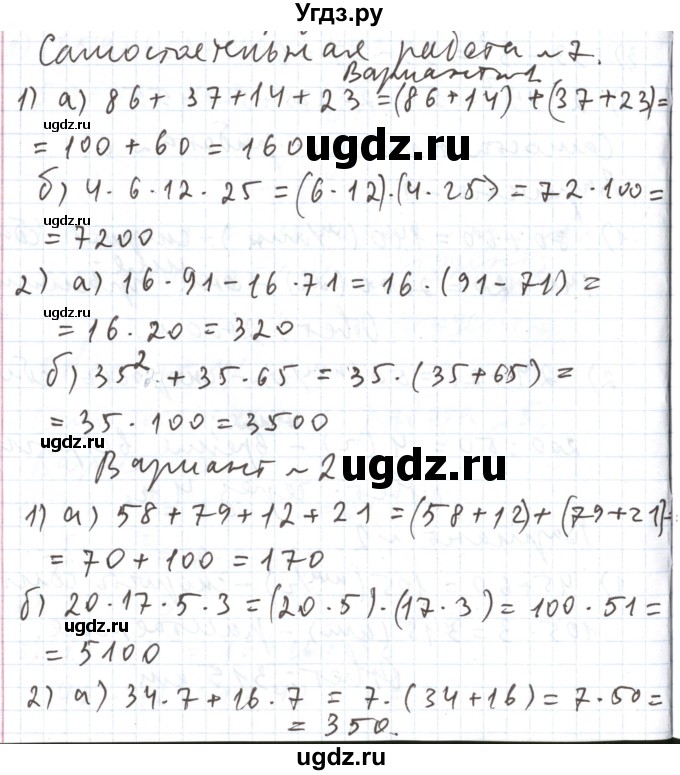 Угдз.ру
Самостоятельная работа №7.
Вариант №1
1) а) 86 + 37 + 14 + 23 = (86 + 14) + (37 + 23) =
ugdz.ru
= 100 + 60 = 160
ugdz.ru
б) 4 · 6 · 12 · 25 = (6 · 12) · (4 · 25) = 72 · 100 =
ugdz.ru
= 7200
2) а) 16 · 91 - 16 · 71 = 16 · (91 - 71) =
ugdz.ru
= 16 · 20 = 320
б) 35² + 35 · 65 = 35 · (35 + 65) =
= 35 · 100 = 3500
ugdz.ru
Вариант №2
ugdz.ru
1) а) 58 + 79 + 12 + 21 = (58 + 12) + (79 + 21) =
ugdz.ru
= 70 + 100 = 170
б) 20 · 17 · 5 · 3 = (20 · 5) · (17 · 3) = 100 · 51 =
ugdz.ru
= 5100
2) а) 34 · 7 + 16 · 7 = 7 · (34 + 16) = 7 · 50 =
= 350.
ugdz.ru